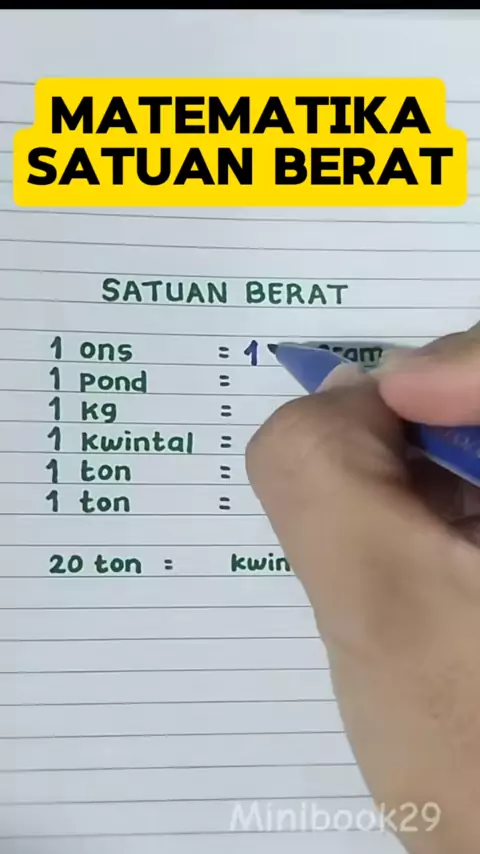 MATEMATIKA
SATUAN BERAT
SATUAN BERAT
1 ons = 1 gram
1 pond =
1 kg =
1 kwintal =
1 ton =
1 ton =
20 ton = kwin
Minibook29